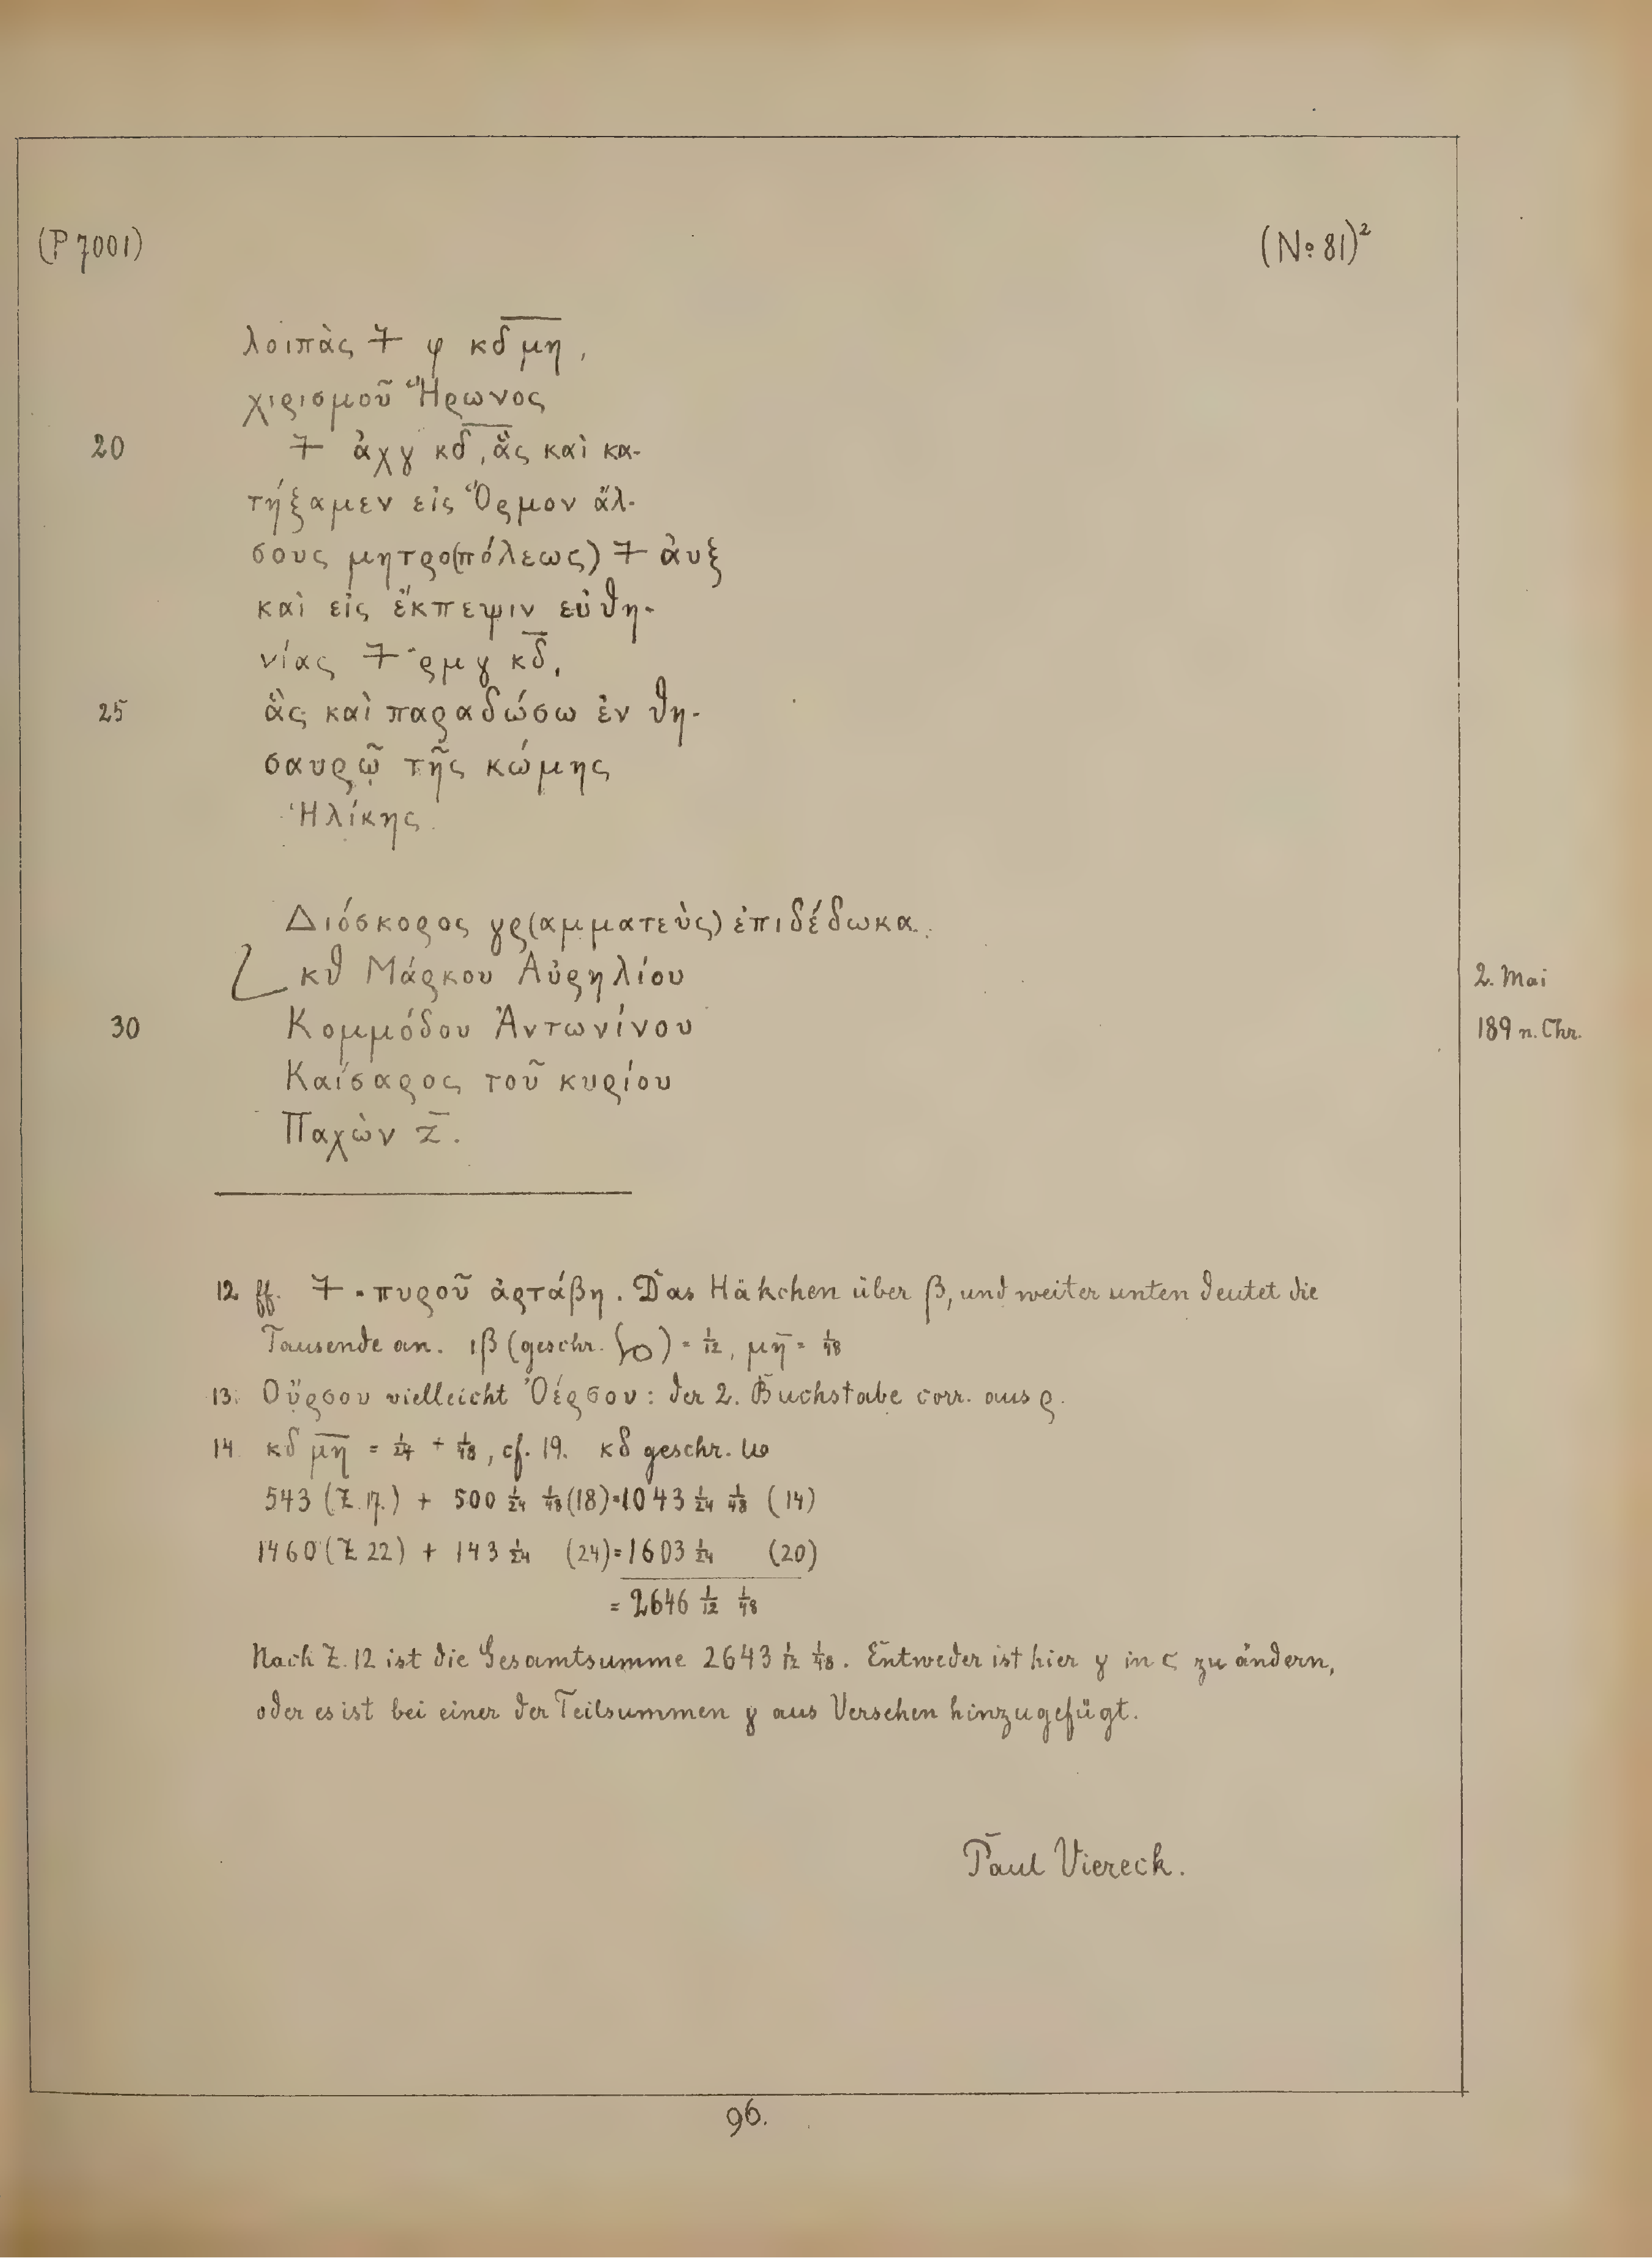 (P 7001)
(No 81)²
λοιπὰς 𐅾 φ κδ μη,
χιρισμοῦ Ἥρωνος
20 𐅾 ἀχγ κδ, ἃς καὶ κα-
τήξαμεν εἰς Ὅρμον ἄλ-
σους μητρο(πόλεως) 𐅾 ἀυξ
καὶ εἰς ἔκπεψιν εὐθη-
νίας 𐅾 ρμγ κδ̄,
25 ἃς καὶ παραδώσω ἐν θη-
σαυρῷ τῆς κώμης
Ἡλίκης.
Διόσκορος γρ(αμματεὺς) ἐπιδέδωκα.
L κθ Μάρκου Αὐρηλίου 2. Mai
30 Κομμόδου Ἀντωνίνου 189 n. Chr.
Καίσαρος τοῦ κυρίου
Παχὼν ζ̄.
12 ff. 𐅾 = πυροῦ ἀρτάβη. Das Häkchen über β, und weiter unten deutet die
Tausende an. ιβ (geschr.) = 1/12, μη̄ = 1/48
13. Οὔρσου vielleicht Ὀέρσου: der 2. Buchstabe corr. aus ρ.
14 κδ μη = 1/24 + 1/48, cf. 19. κδ geschr.
543 (Z. 17.) + 500 1/24 1/48 (18) = 1043 1/24 1/48 (14)
1460 (Z 22) + 143 1/24 (24) = 1603 1/24 (20)
= 2646 1/12 1/48
Nach Z. 12 ist die Gesamtsumme 2643 1/12 1/48. Entweder ist hier γ in ς zu ändern,
oder es ist bei einer der Teilsummen γ aus Versehen hinzugefügt.
Paul Viereck.
96.